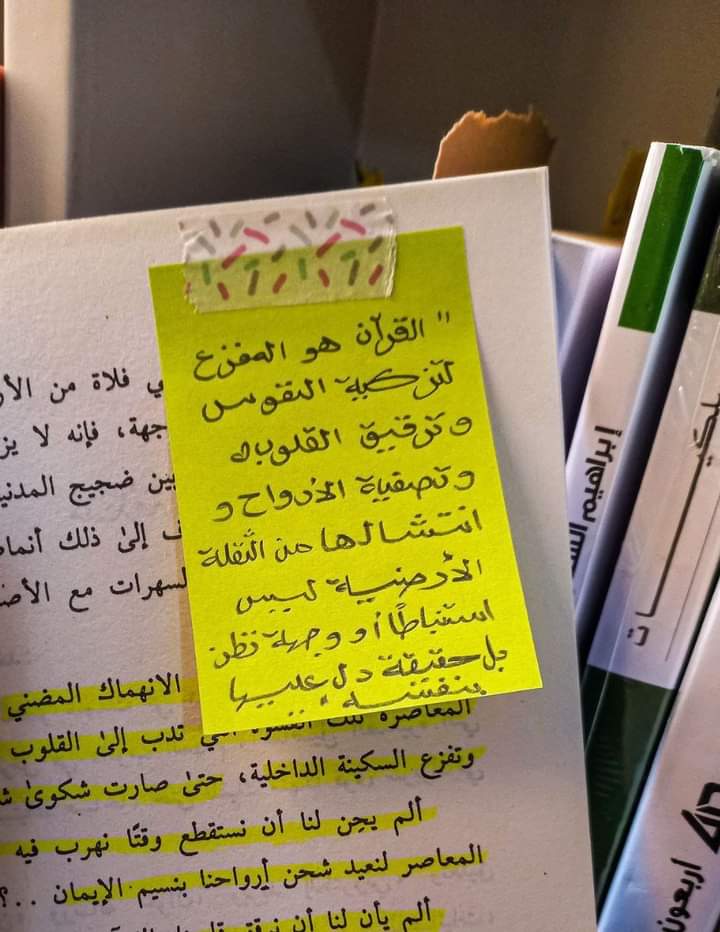 " القرآن هو المفزع
لتزكية النفوس
و ترقيق القلوب
و تصفية الأرواح و
انتشالها من الثقلة
الأرضية ليس
استنباطًا أو وجهة نظر
بل حقيقة دل عليها
بنفسه "
ي فلاة من الأر
جهة، فإنه لا يز
بين ضجيج المدني
ف إلىٰ ذلك أنما
لسهرات مع الأص
الانهماك المضني
المعاصرة تلك القسوة التي تدب إلىٰ القلوب
وتفزع السكينة الداخلية، حتىٰ صارت شكوىٰ ش
ألم يحِن لنا أن نستقطع وقتًا نهرب فيه
المعاصر لنعيد شحن أرواحنا بنسيم الإيمان ..؟
ألم يأن لنا أن نرقق
إبراهيم الس
أربعون